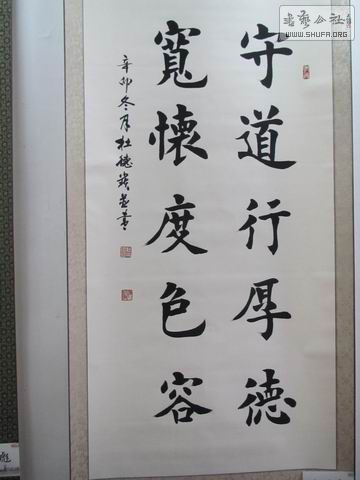 守道行厚德
寬懷度色容
辛卯冬月杜德
书艺公社
WWW.SHUFA.ORG